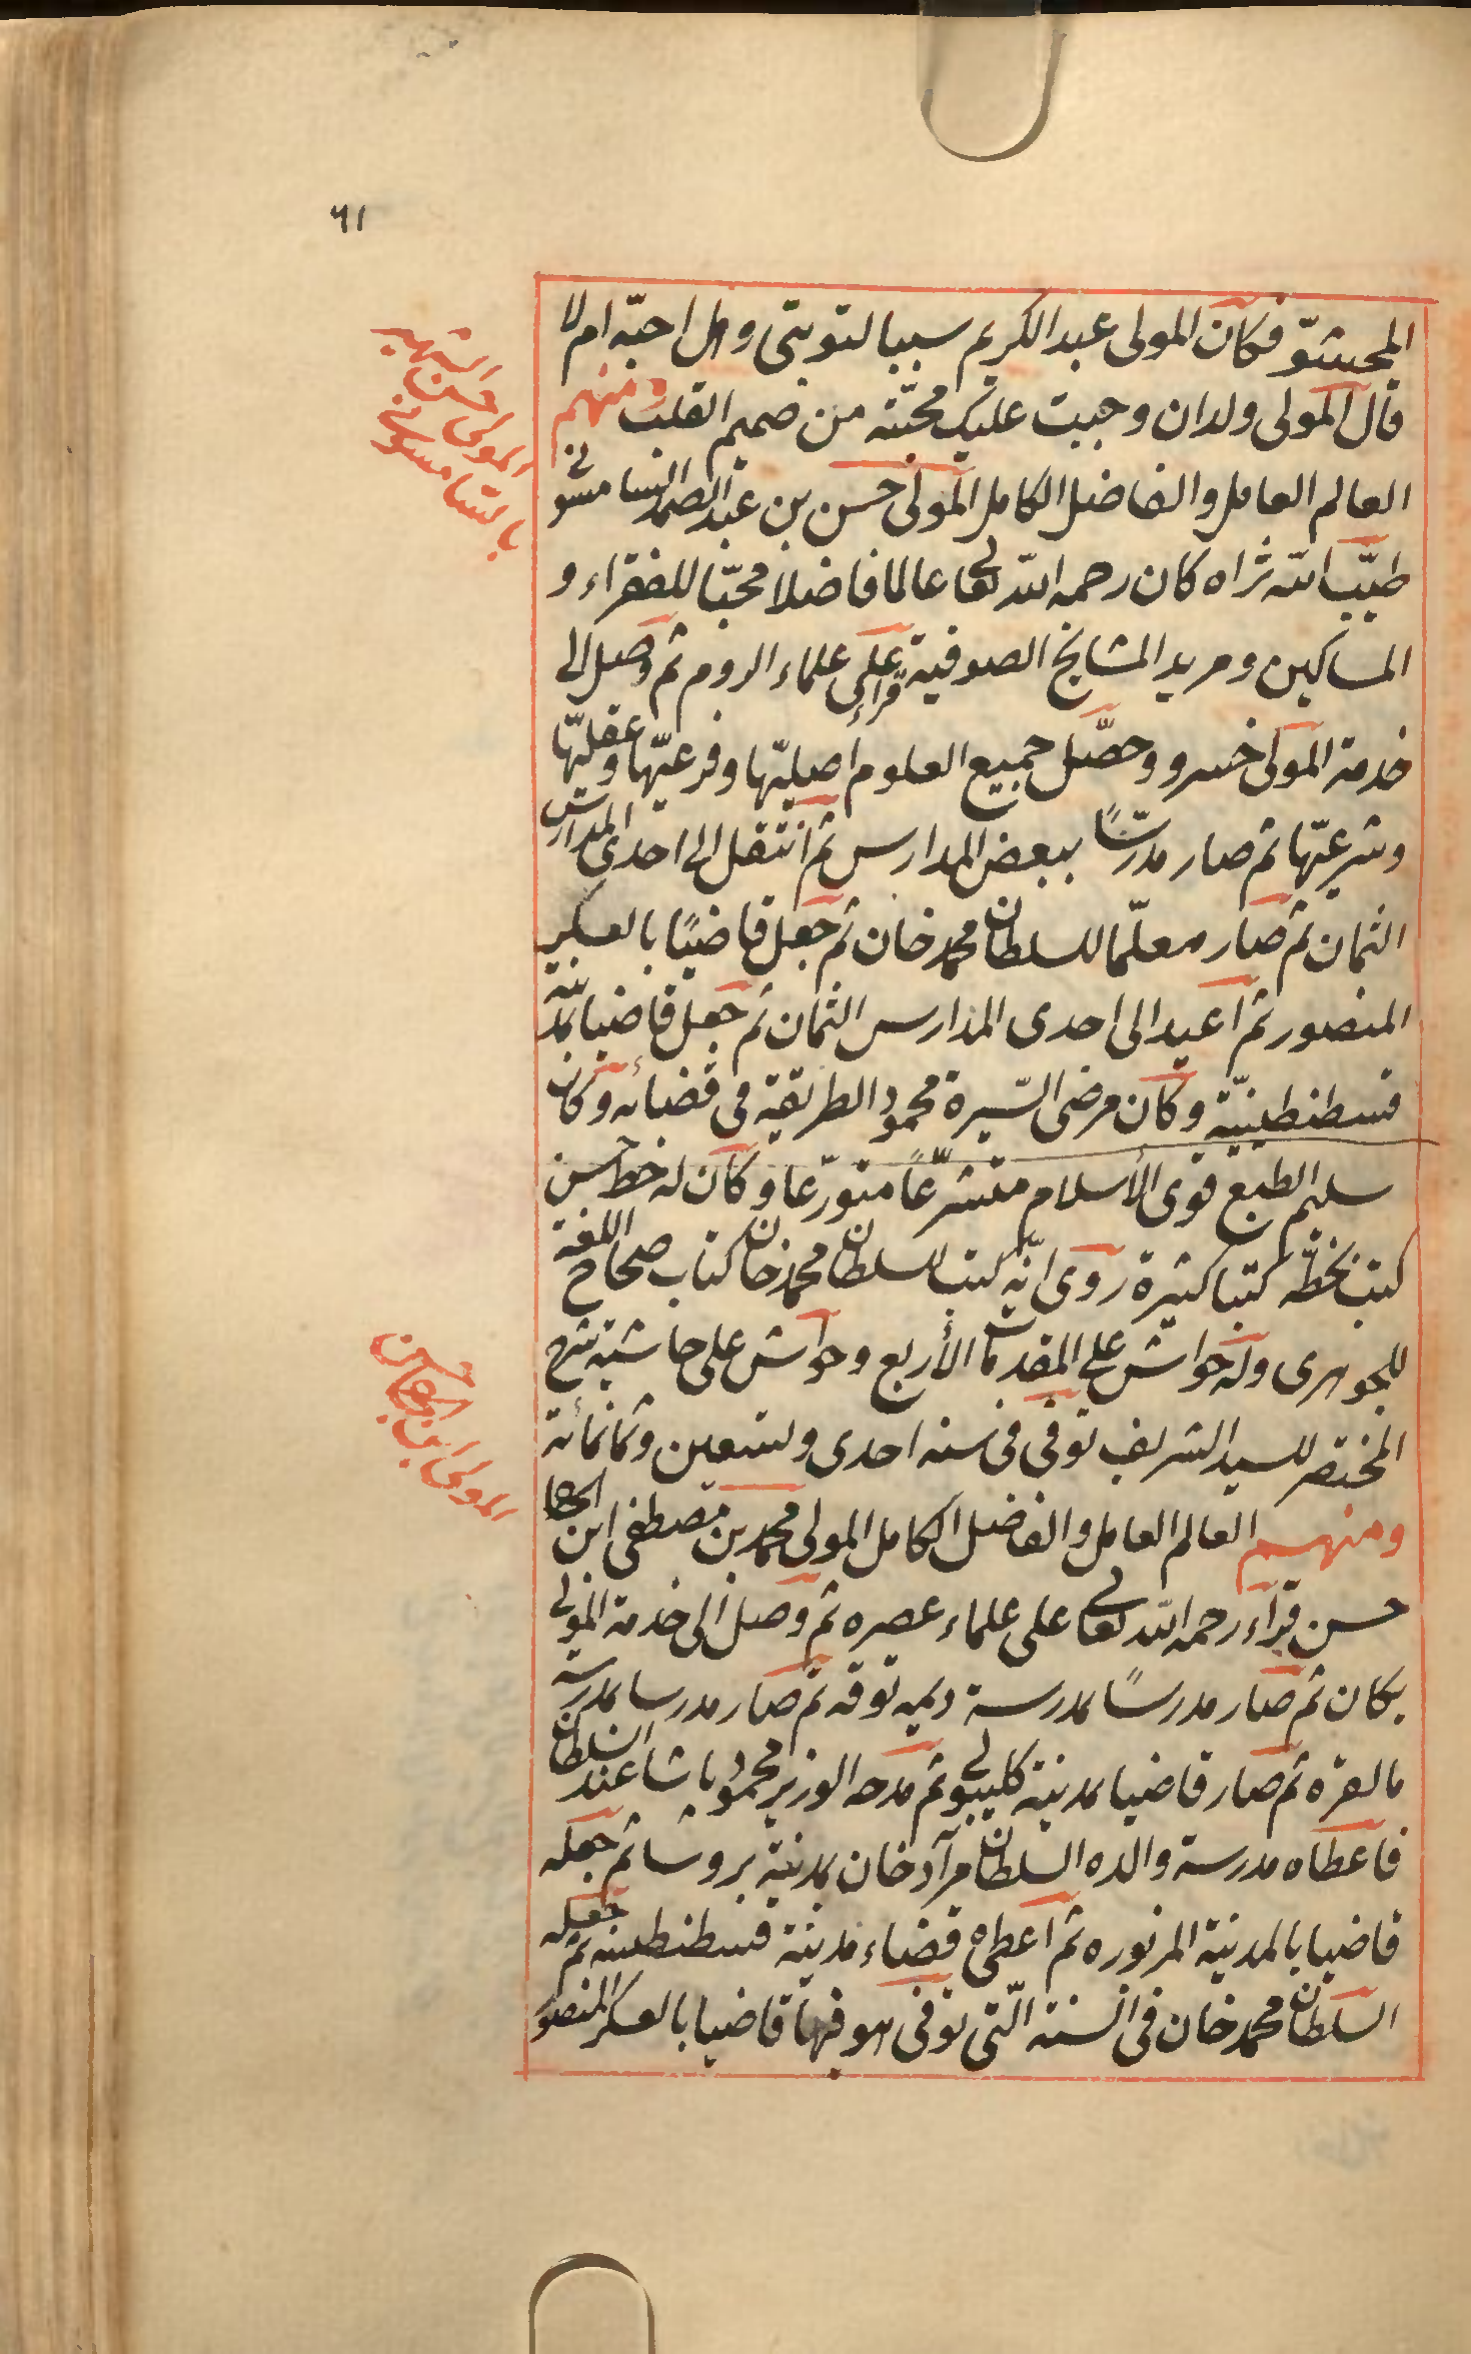 ٦١
المحشوّ فكان المولى عبد الكريم سببا لتوبتى وهل احبّه ام لا
قال المولى ولدان وجبت عليك محبّته من صميم القلب ومنهم
العالم العامل والفاضل الكامل المولى حسن بن عبد الصمد السامسونى
طيّب الله ثراه كان رحمه الله تعالى عالما فاضلا محبّا للفقراء و
المساكين ومريد المشايخ الصوفية قراء على علماء الروم ثم وصل الى
خدمة المولى خسرو وحصّل جميع العلوم اصليّها وفرعيّها وعقليّها
وشرعيّها ثم صار مدرّسًا ببعض المدارس ثم انتقل الى احدى المدارس
الثمان ثم صار معلّما للسلطان محمد خان ثم جعل قاضيًا بالعسكر
المنصور ثم اعيد الى احدى المدارس الثمان ثم جعل قاضيا بمدينة
قسطنطينيّة وكان مرضى السّيرة محمود الطريقة فى قضائه وكان
سليم الطبع قوى الأسلام متشرّعًا متورّعا وكان له خط حسن
كتب بخطّه كتبا كثيرة روى انّه كتب للسلطان محمد خان كتاب صحاح اللغة
للجوهرى وله حواش على المقدمات الأربع وحواش على حاشية شرح
المختصر للسيد الشريف توفى فى سنه احدى وتسعين وثمانمائة
ومنهم العالم العامل والفاضل الكامل المولى محمد بن مصطفى ابن الحاج
حسن قراء رحمه الله تعالى على علماء عصره ثم وصل الى خدمة المولى
يكان ثم صار مدرسًا بمدرسة ديمه توقه ثم صار مدرسا بمدرسة
بالقره ثم صار قاضيا بمدينة كليبولى ثم مدحه الوزير محمود باشا عند السلطان
فاعطاه مدرسة والده السلطان مراد خان بمدينة بروسا ثم جعله
قاضيا بالمدينة المزبوره ثم اعطى قضاء مدينة قسطنطينيه ثم جعله
السلطان محمد خان فى السنة الّتى توفى هو فيها قاضيا بالعسكر المنصور
المولى حسن الشهير
بالسامسونى
المولى ابن الحاج حسن